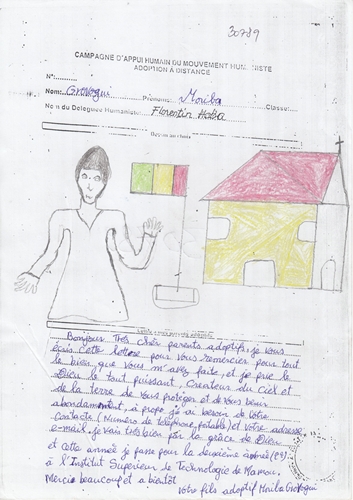 30789
CAMPAGNE D'APPUI HUMAIN DU MOUVEMENT HUMANISTE
ADOPTION A DISTANCE
N°:
Nom: Grovogui Prénom: Moriba Classe:
Nom du Délégué Humaniste: Florentin Haba
Bonjour très cher parents adoptifs, je vous
fais cette lettre pour vous remercier pour tout
le bien que vous m'avez faite, et je prie le
Dieu le tout puissant, Createur du ciel et
de la terre de vous proteger et de vous benir
abondamment, à propo j'ai besoin de votre
contacts (Numero de téléphone potable) et votre adresse
e-mail. je vais très bien par la grâce de Dieu
et cette année je passe pour la deuxieme année
à l'Institut Superieur de Technologie de Mamou.
Merci beaucoup et a bientôt
votre fils adoptif Moriba Grovogui